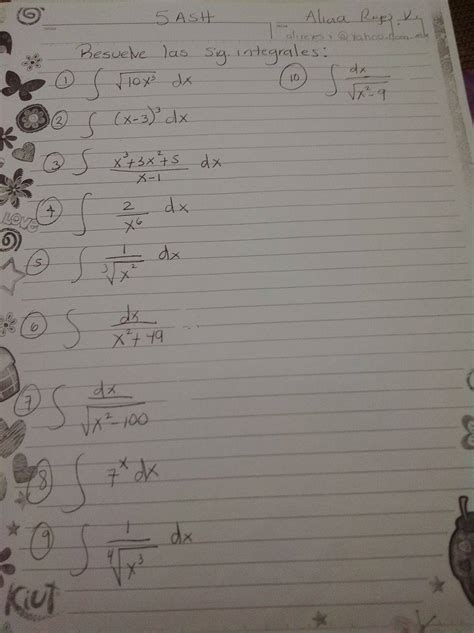 5 ASH
Resuelve las sig. integrales:
① ∫ √10x³ dx
⑩ ∫ dx / √x²-9
② ∫ (x-3)³ dx
③ ∫ x³+3x²+5 / x-1 dx
④ ∫ 2 / x⁶ dx
⑤ ∫ 1 / ³√x² dx
⑥ ∫ dx / x²+49
⑦ ∫ dx / √x²-100
⑧ ∫ 7ˣ dx
⑨ ∫ 1 / ⁴√x³ dx
LOVE
Kiut